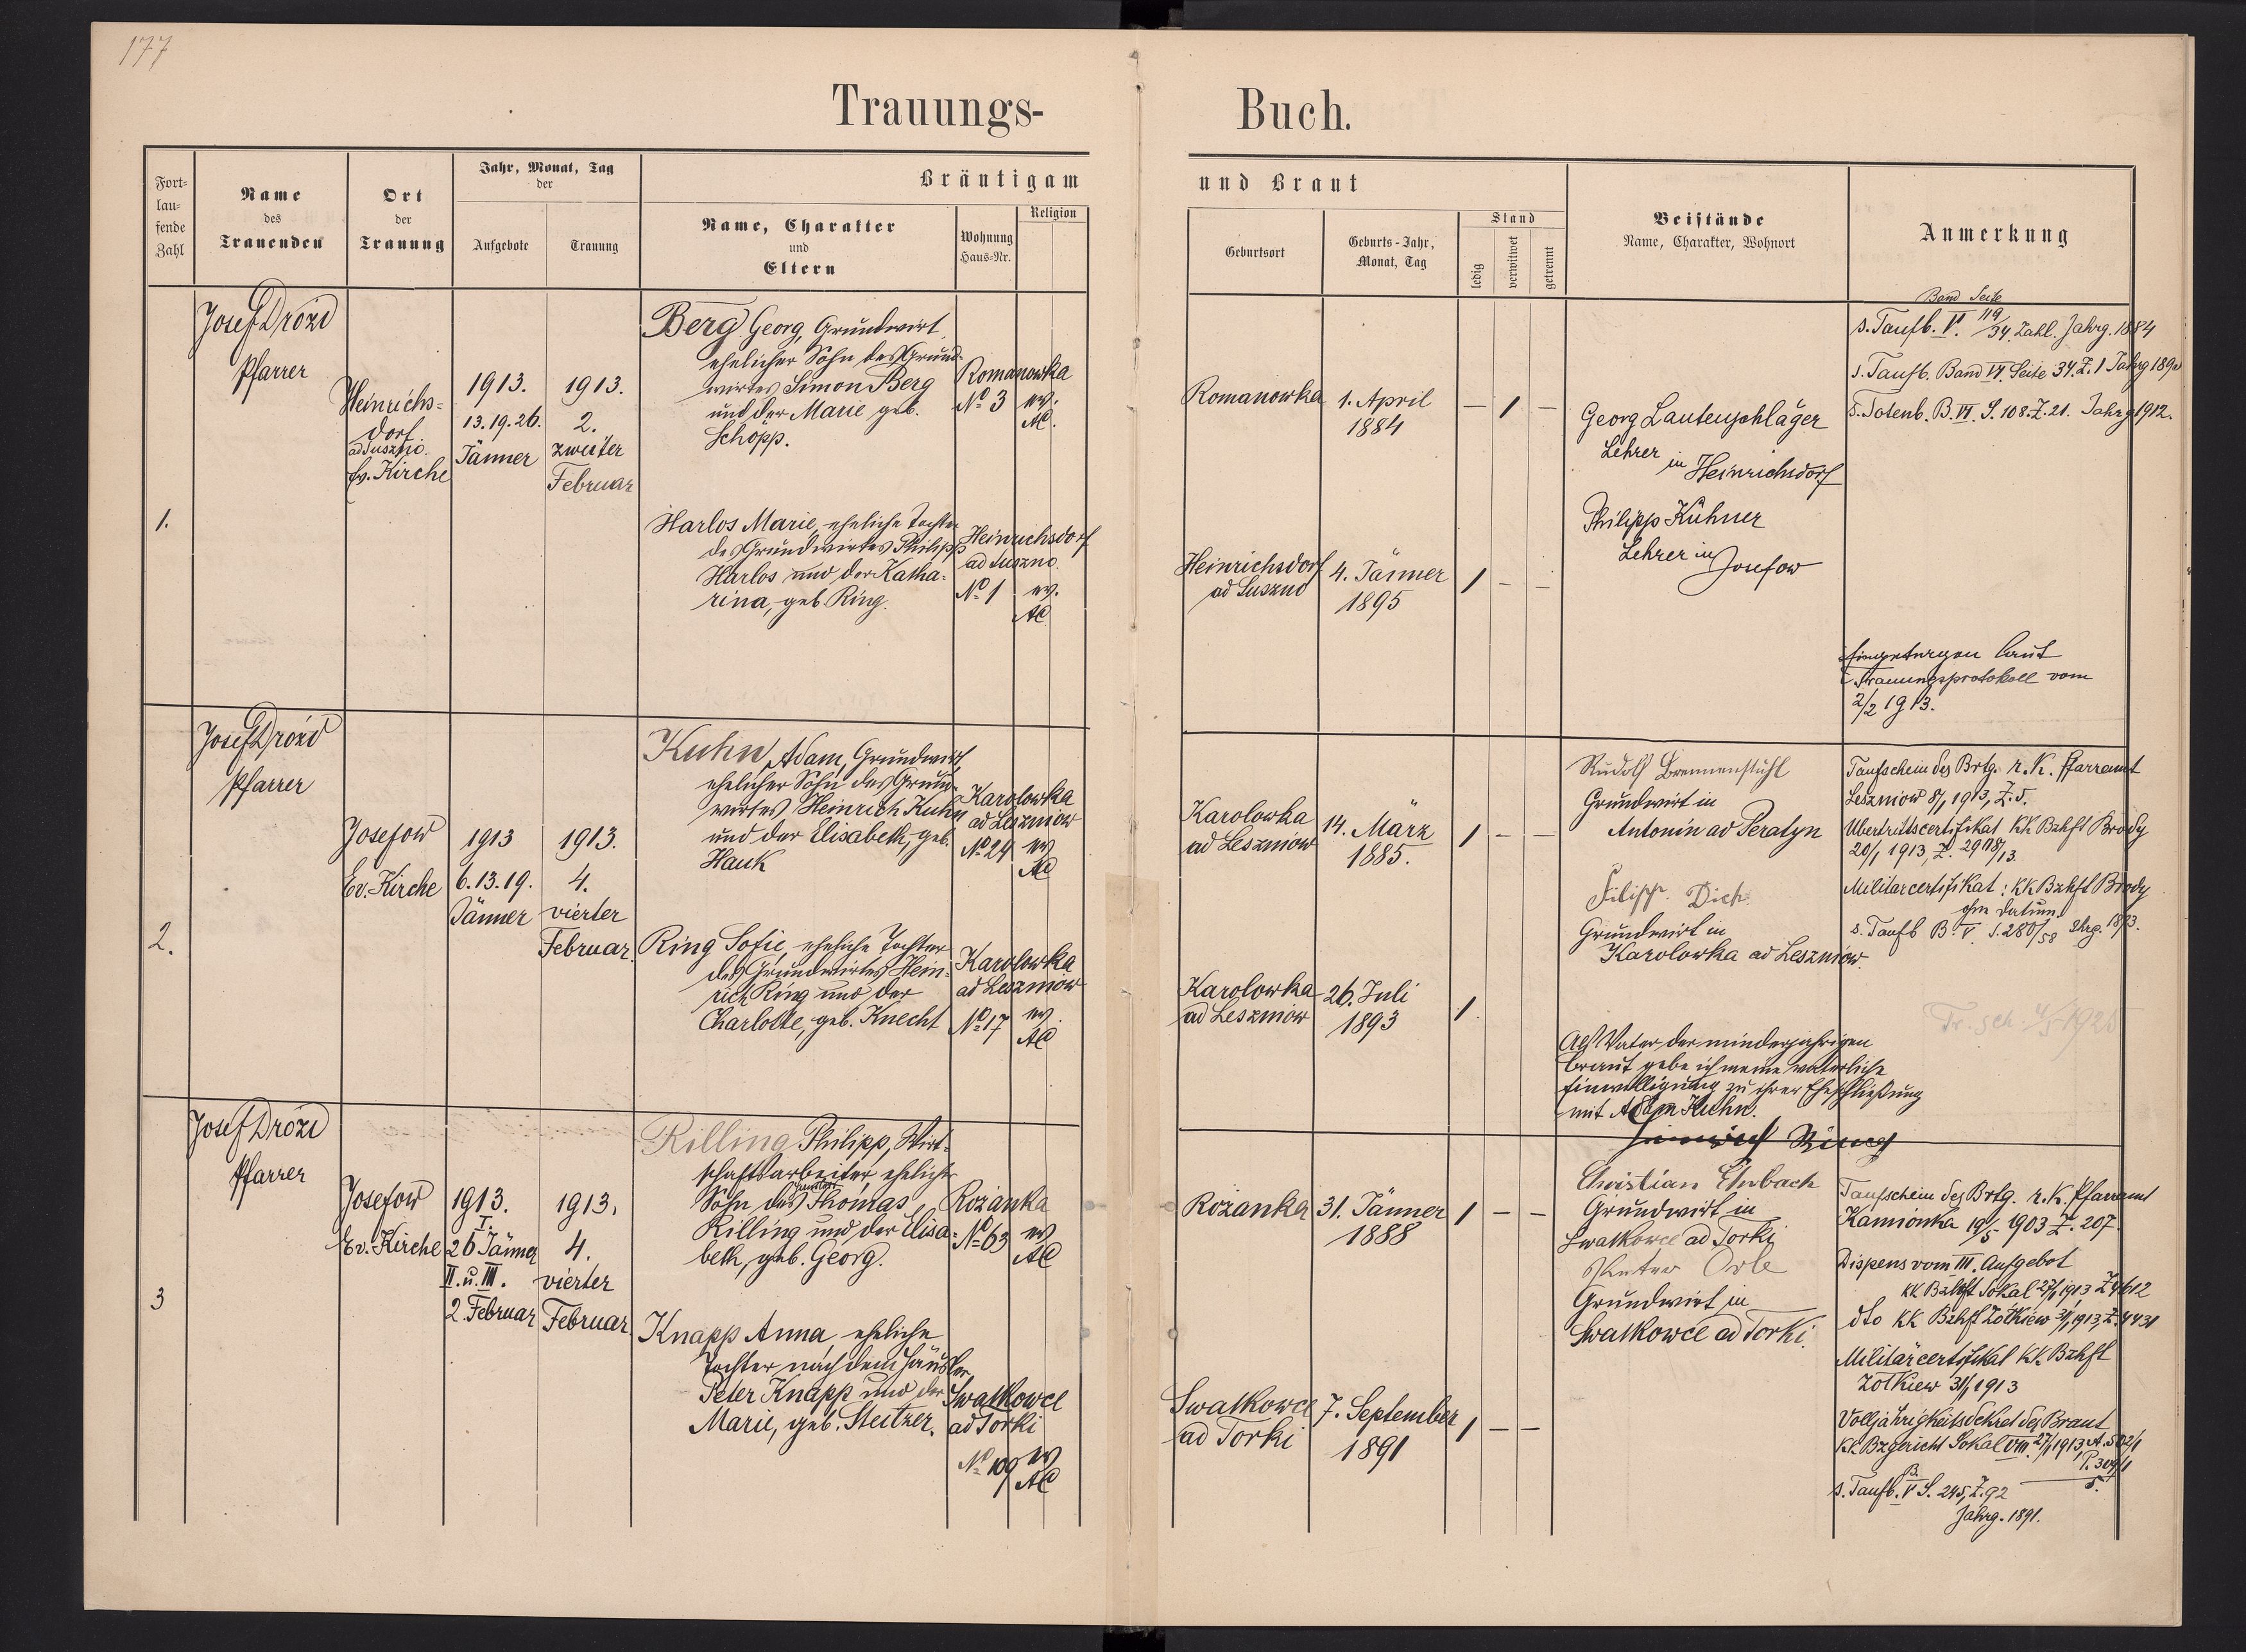 177
Trauungs-
Buch.
Fort=
lau=
fende
Zahl
Name
des
Trauenden
Ort
der
Trauung
Jahr, Monat, Tag
der
Aufgebote
Trauung
Bräutigam
Name, Charakter
und
Eltern
Wohnung
Haus=Nr.
Religion
und Braut
Geburtsort
Geburts-Jahr,
Monat, Tag
Stand
ledig
verwitwet
getrennt
Beistände
Name, Charakter, Wohnort
Anmerkung
1.
Josef Drozd
Pfarrer
Heinrichs=
dorf
ad Suszno.
Ev. Kirche
1913.
13. 19. 26.
Jänner
1913.
2.
zweiter
Februar
Berg Georg, Grundwirt
ehelicher Sohn des Grund-
wirtes Simon Berg
und der Marie geb.
Schöpp.
Romanowka
No 3
ev.
AC.
Harlos Marie, eheliche Tochter
des Grundwirtes Philipp
Harlos und der Katha-
rina, geb. Ring.
Heinrichsdorf
ad Suszno
No 1
ev.
AC
Romanowka
1. April
1884
— 1 —
Heinrichsdorf
ad Suszno
4. Jänner
1895
1 — —
Georg Lautenschläger
Lehrer
in Heinrichsdorf
Philipp Kühner
Lehrer in
Josefow
Band Seite
s. Taufb. V. 119/34. Zahl. Jahrg. 1884
s. Taufb. Band VI. Seite 34. Z. 1 Jahrg 1895
s. Totenb. B. VI. S. 108. Z. 21. Jahrg 1912.
Eingetragen laut
Trauungsprotokoll vom
2/2 1913.
2.
Josef Drozd
Pfarrer
Josefow
Ev. Kirche
1913
6. 13. 19.
Jänner
1913.
4.
vierter
Februar.
Kuhn Adam, Grundwirt,
ehelicher Sohn des Grund-
wirtes Heinrich Kuhn
und der Elisabeth, geb.
Hauk
Karolowka
ad Leszniow
No 24
ev
AC
Ring Sofie, eheliche Tochter
des Grundwirtes Hein-
rich Ring und der
Charlotte, geb. Knecht
Karolowka
ad Leszniow
No 17
ev.
AC
Karolowka
ad Leszniow
14. März
1885.
1 — —
Karolowka
ad Leszniow
26. Juli
1893
1
Rudolf Brennenstuhl
Grundwirt in
Antonin ad Peratyn
Filipp Dich
Grundwirt in
Karolowka ad Leszniow.
Als Vater der minderjährigen
Braut gebe ich meine väterliche
Einwilligung zu ihrer Eheschließung
mit Adam Kuhn.
Heinrich Ring
Taufschein des Brtg. r. K. Pfarramt
Leszniow 8/1 1913, Z. 5.
Übertrittscertifikat KK Bzhft Brody
20/1 1913, Z. 2978/13.
Militärcertifikat: KK Bzhft Brody
ohne Datum
s. Taufb B. V. S. 280/58 Jhrg. 1893.
3
Josef Drozd
Pfarrer
Josefow
Ev. Kirche
1913.
I.
26 Jänner
II. u. III.
2. Februar
1913.
4.
vierter
Februar
Rilling Philipp, Wirt-
schaftsarbeiter, ehelicher
Sohn des Thomas
Rilling und der Elisa-
beth, geb. Georg.
Rozanka
No 63
ev
AC
Knapp Anna, eheliche
Tochter nach dem Häusler
Peter Knapp und der
Marie, geb. Steitzer.
Swatkowce
ad Torki
No 109
ev
AC
Rozanka
31. Jänner
1888
1 — —
Swatkowce
ad Torki
7. September
1891
1 — —
Christian Ehrbach
Grundwirt in
Swatkowce ad Torki
Peter Orle
Grundwirt in
Swatkowce ad Torki.
Taufschein des Brtg. r. K. Pfarramt
Kamionka 19/5 1903 Z. 207.
Dispens vom III. Aufgebot
KK Bzhft Sokal 27/1 1913 Z 4612
dto KK Bzhft Zołkiew 31/1 1913, Z. 4431
Militärcertifikat KK Bzhft
Zołkiew 31/1 1913
Volljährigkeitsdekret der Braut
KK Bzgericht Sokal VIII. 27/1 1913, A. 502/1
P. 309/1
5.
s. Taufb. B. V S. 245, Z. 92
Jahrg. 1891.